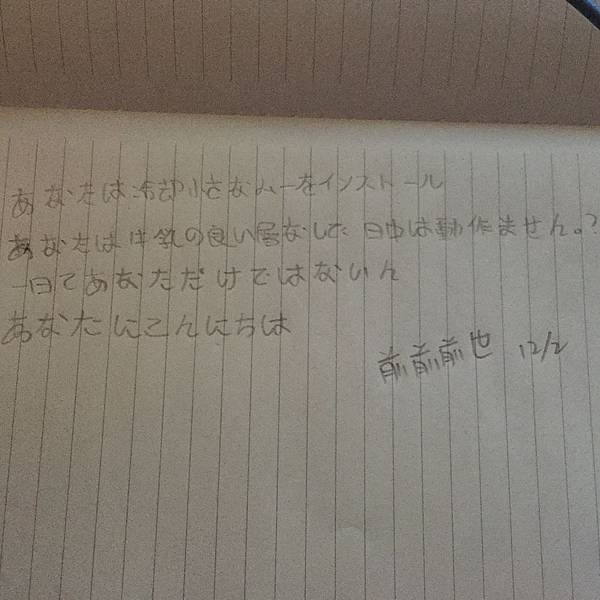 あなたは冷却小さなムーをインストール
あなたは牛気の良い層なしで 日中は動作ません。?
一日てあなただけではないん
あなたにこんにちは
前前前世 12/2